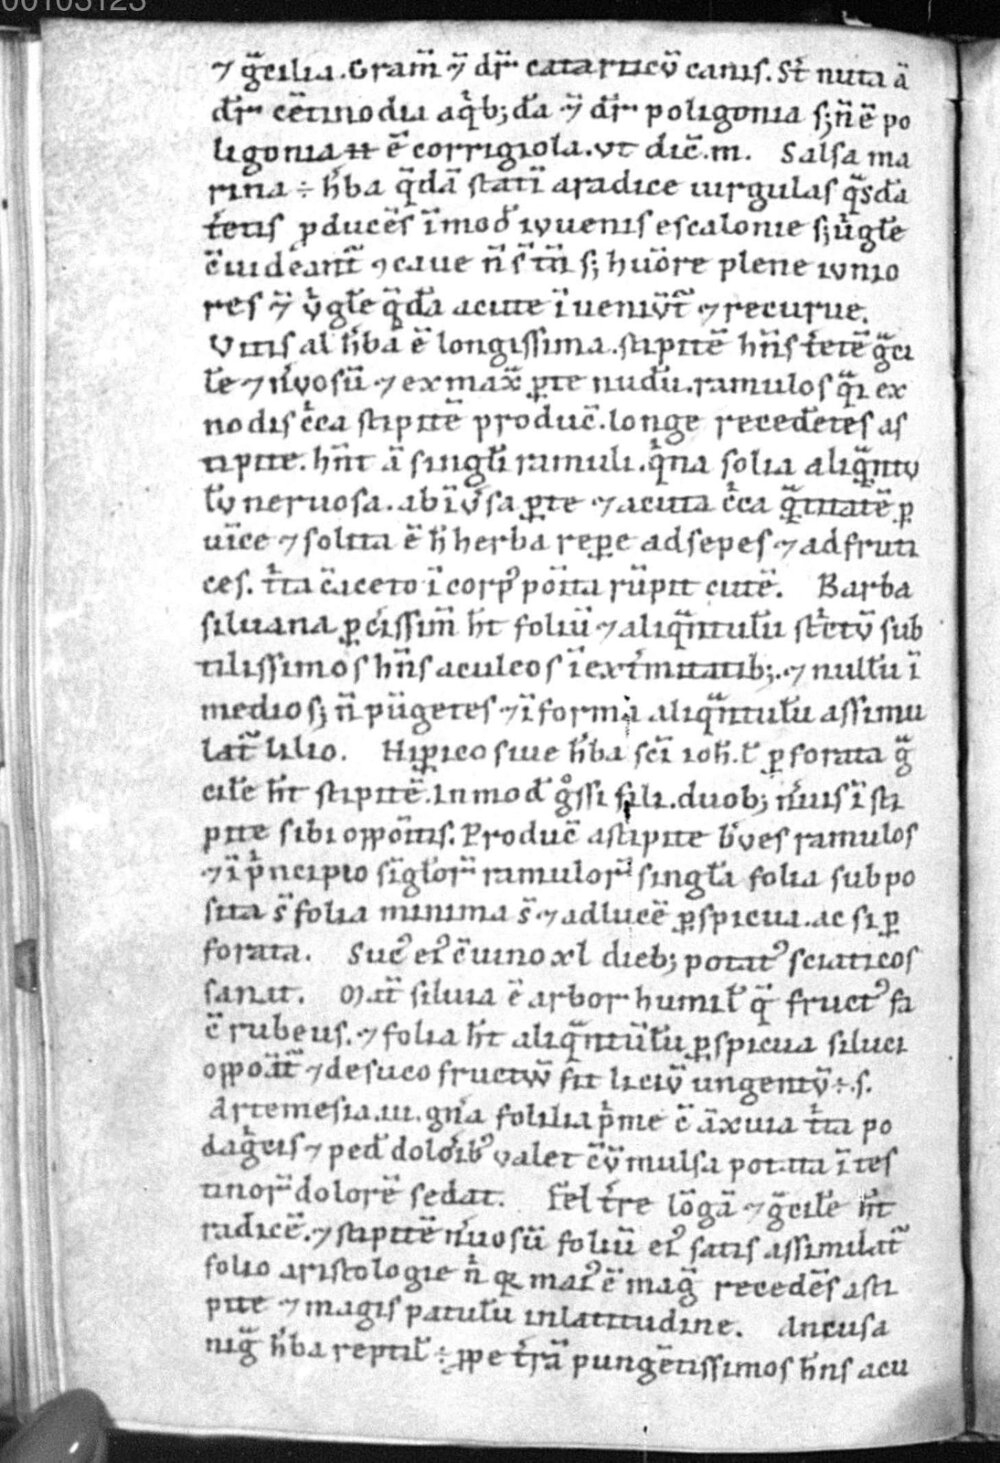 00103123
⁊ g̃cilia. Gram̃ ⁊̃ dr̃ catarticũ canis. St̃ nuta ã
dr̃ cẽtinodia aq̃b; dã ⁊̃ dr̃ poligonia s; ñ ẽ po
ligonia ẽ corrigiola. ut dic̃. m. Salsa ma
rina ÷ h̃ba q̃dã statĩ aradice uirgulas q̃sdã
tetis ꝓducẽs ĩ mod̃ iuuenis escalonie s; ũgl̃e
⁊ caue ñ s̃ tñ s; hũore plene iunio
res ⁊̃ ũgl̃e q̃dã acute ĩueniũt̃ ⁊ recurue.
Vitis al h̃ba ẽ longissima. stipitẽ hñs tetẽ g̃ci
l̃e ⁊ ex max̃ ꝑte nudũ. ramulos q̃i ex
nodis c̃ca stipitẽ produc̃. longe recedẽtes as
tipite. hñt ã singl̃i ramuli. q̃na folia aliq̃ntu
l̃u neruosa. ab ĩũsa ꝑte ⁊ acuta c̃ca ꝑ
uĩce ⁊ solita ẽ h̃ herba repe adsepes ⁊ adfruti
ces. t̃ta c̃ aceto ĩ corꝑ põita rũpit cutẽ. Barba
siluana ꝑcissim̃ h̃t foliũ ⁊ aliq̃ntul̃u st̃ctũ sub
tilissimos hñs aculeos ĩ extmitatib;. ⁊ nullũ ĩ
medio s; ñ pũgetes ⁊ ĩ forma aliq̃ntul̃u assimu
lat̃ lilio. Hiꝑico siue h̃ba sc̃i ioh̃. l̃ ꝑforata g̃
cil̃e h̃t stipitẽ. In mod̃ g̃ssi fili. duob; ĩ sti
pite sibi oppõitis. Produc̃ astipite b̃ues ramulos
⁊ ĩ p̃ncipio sĩgl̃or̃ ramulor̃ singl̃a folia subpo
sita s̃ folia minima s̃ ⁊ adlucẽ ꝑspicua. ac si ꝑ
forata. Suc̃ ei᷒ c̃ uino xl dieb; potat᷒ sciaticos
sanat. Mat̃ siluia ẽ arbor humil̃ q̃ fruct᷒ fa
c̃ rubeus. ⁊ folia h̃t aliq̃ntũl̃u ꝑspicua silueĩ
oppõit̃ ⁊ desuco fructuũ fit liciũ ungentũ ÷ s.
Artemesia. iii. gñа folilia p̃me c̃ ãxuia t̃ta po
dag̃cis ⁊ ped̃ dolõib᷒ ualet c̃ũ mulsa potata ĩtes
tinor̃ dolorẽ sedat. Fel t̃re lõgã ⁊ g̃cil̃e h̃t
radicẽ. ⁊ stipitẽ foliũ ei᷒ satis assimilat̃
folio aristologie ñ qr mai᷒ ẽ mag̃ recedẽs asti
pite ⁊ magis patul̃u inlatitudine. Ancusa
nig̃ h̃ba reptil̃ ÷ ꝓpe t̃rã pungẽtissimos hñs acu